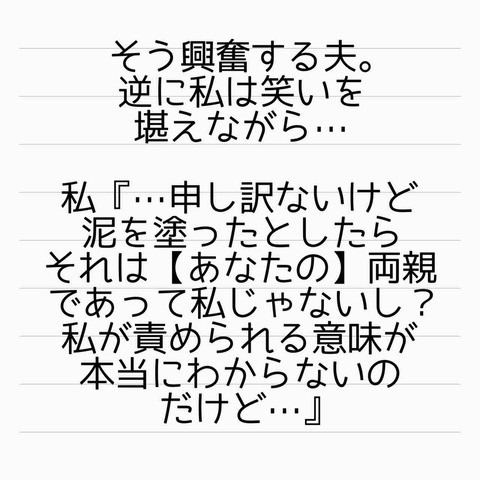 そう興奮する夫。
逆に私は笑いを
堪えながら…
私『…申し訳ないけど
泥を塗ったとしたら
それは【あなたの】両親
であって私じゃないし？
私が責められる意味が
本当にわからないの
だけど…』